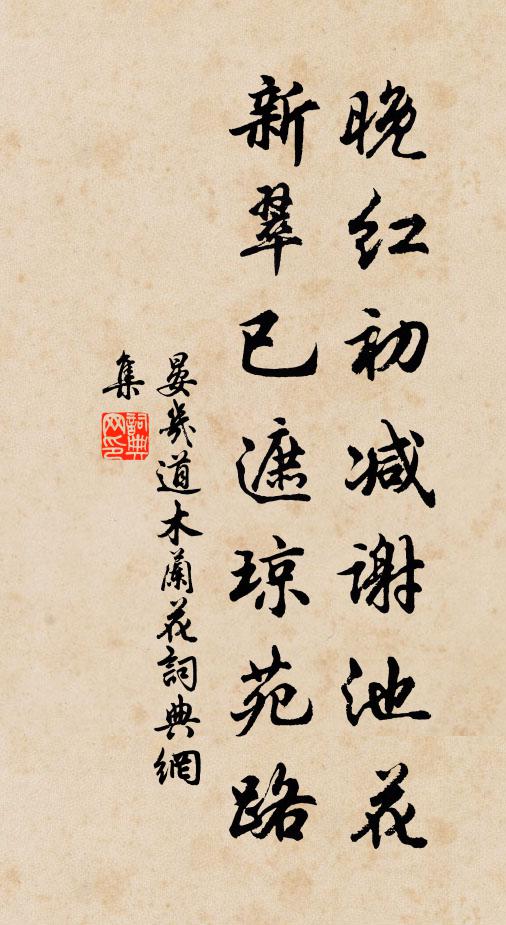 晚红初减谢池花
新翠已遮琼苑路
晏幾道木蘭花詞典網
集
詞典
网印